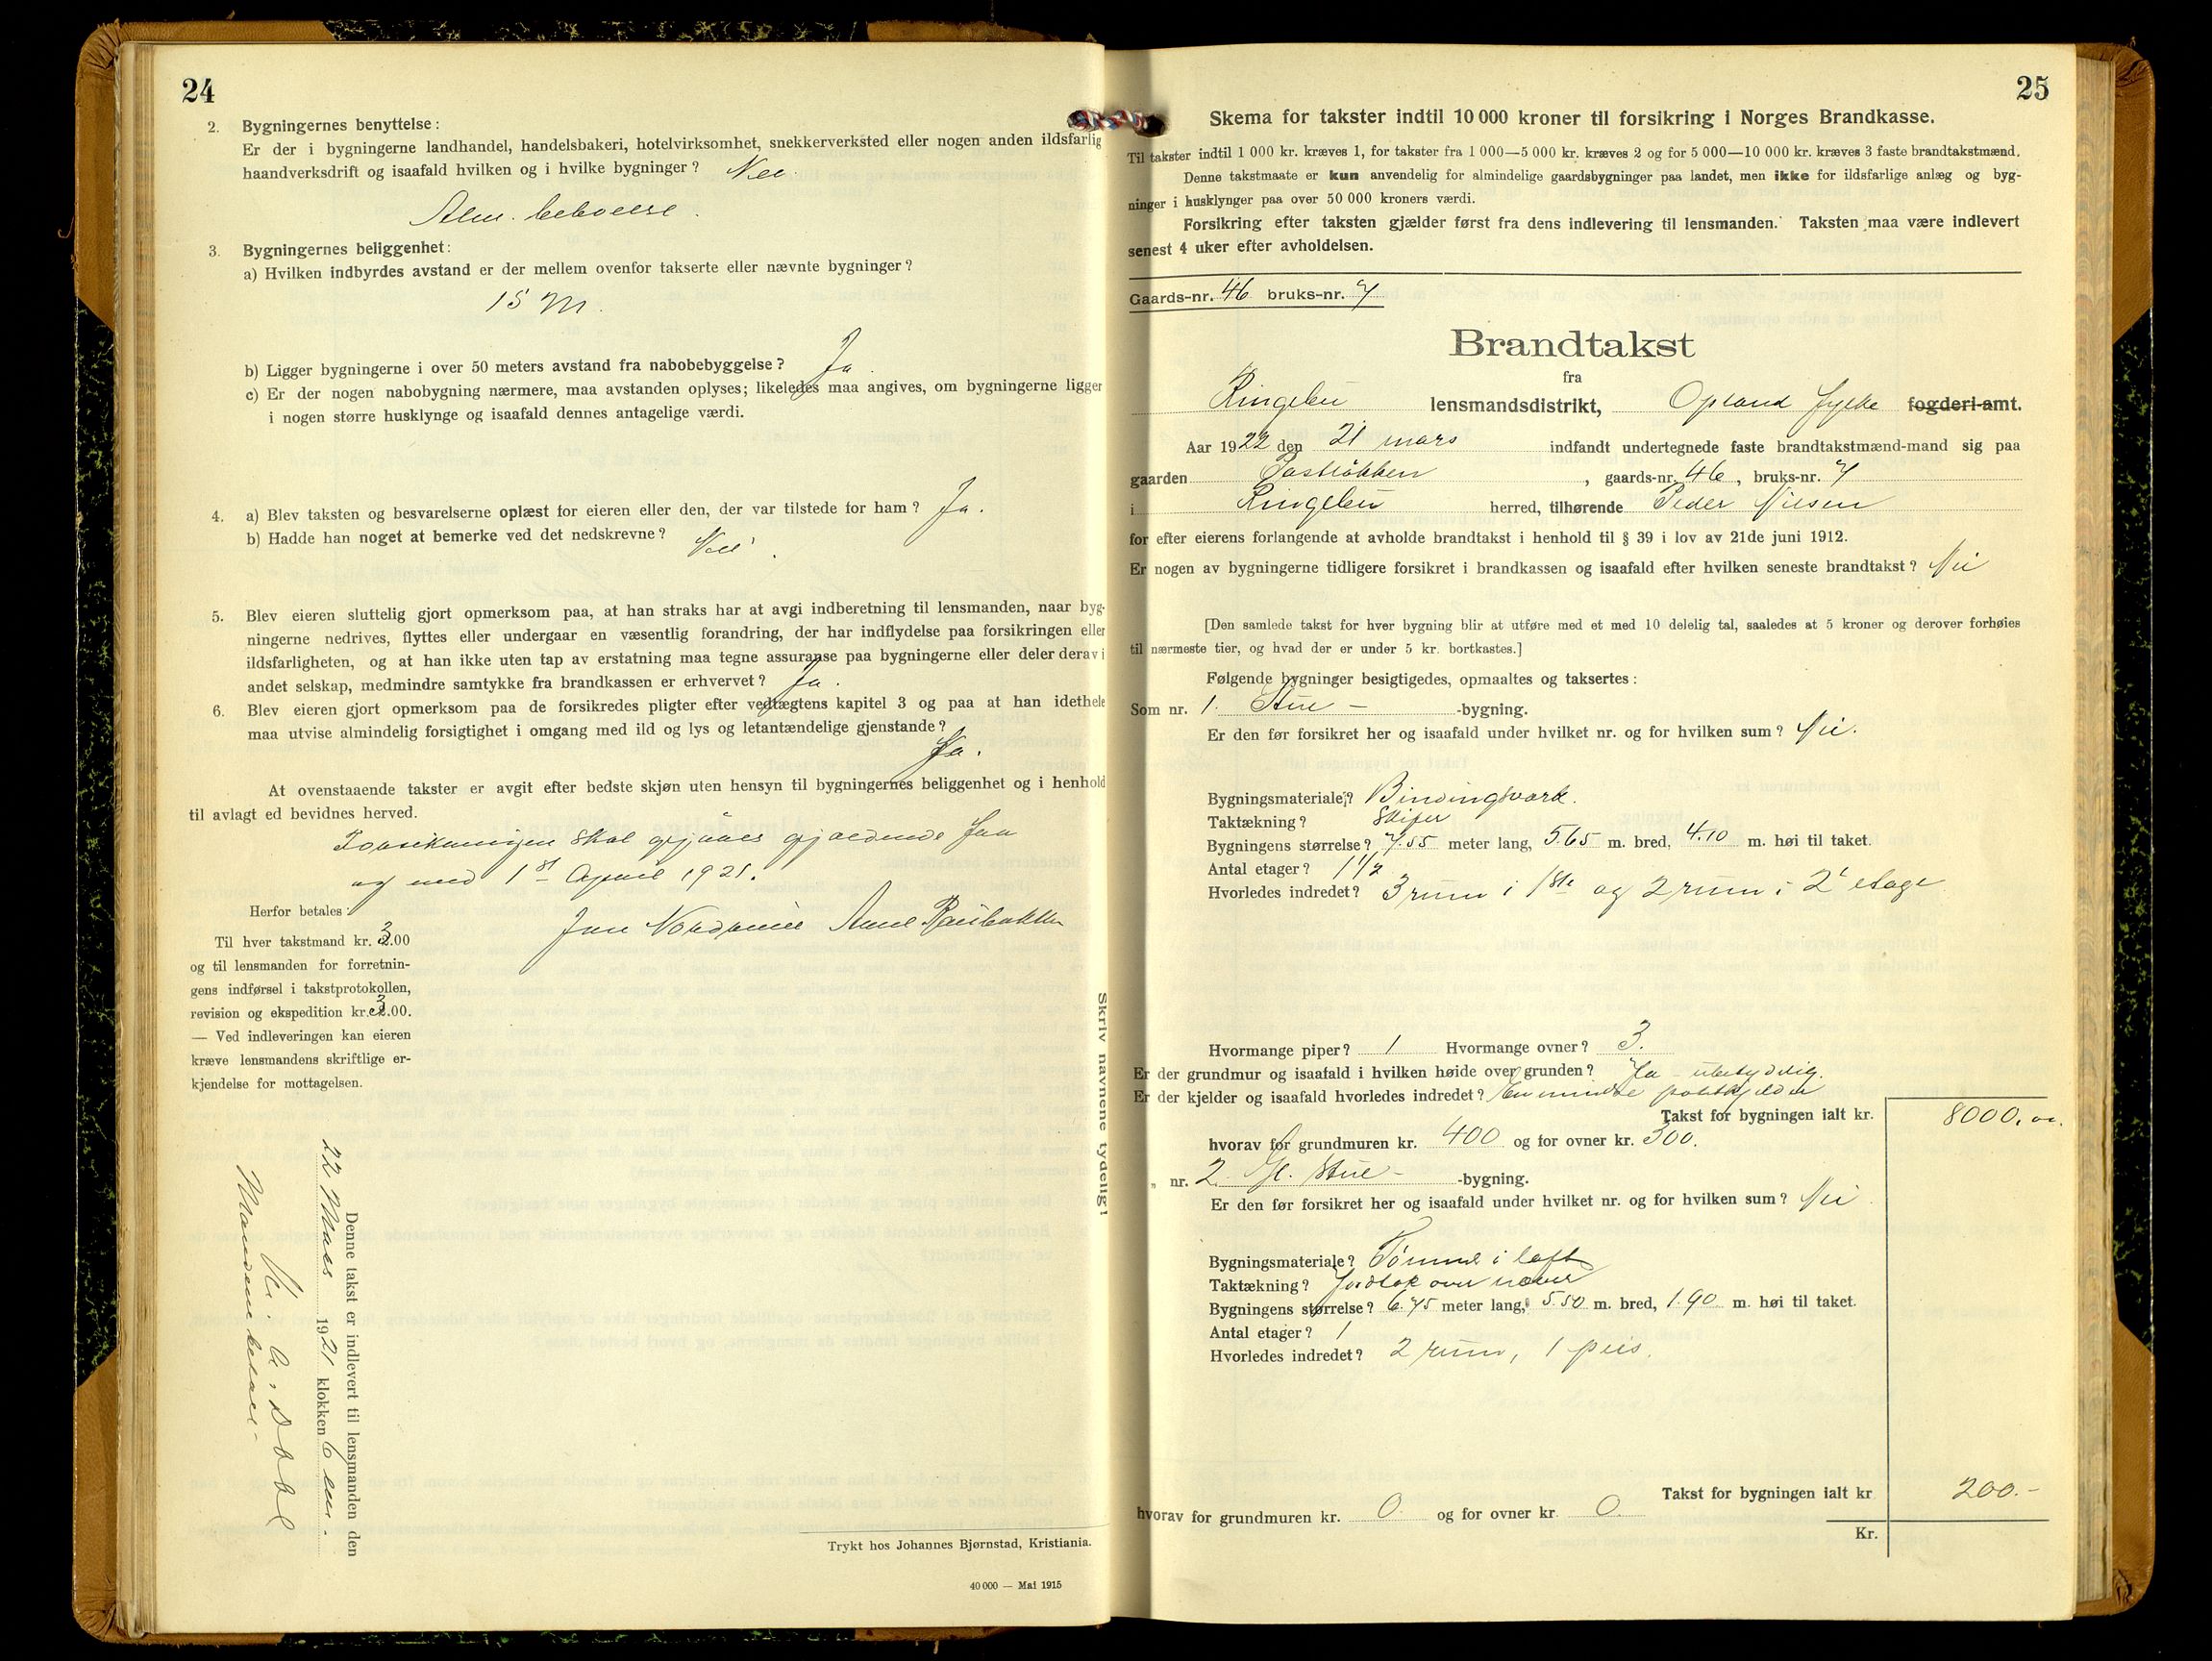 24
2. Bygningernes benyttelse:
Er der i bygningerne landhandel, handelsbakeri, hotelvirksomhet, snekkerverksted eller nogen anden ildsfarlig
haandverksdrift og isaafald hvilken og i hvilke bygninger? Nei.
Alm. beboelse.
3. Bygningernes beliggenhet:
a) Hvilken indbyrdes avstand er der mellem ovenfor takserte eller nævnte bygninger?
15 M.
b) Ligger bygningerne i over 50 meters avstand fra nabobebyggelse? Ja.
c) Er der nogen nabobygning nærmere, maa avstanden oplyses; likeledes maa angives, om bygningerne ligger
i nogen større husklynge og isaafald dennes antagelige værdi.
4. a) Blev taksten og besvarelserne oplæst for eieren eller den, der var tilstede for ham? Ja.
b) Hadde han noget at bemerke ved det nedskrevne? Nei.
5. Blev eieren sluttelig gjort opmerksom paa, at han straks har at avgi indberetning til lensmanden, naar byg-
ningerne nedrives, flyttes eller undergaar en væsentlig forandring, der har indflydelse paa forsikringen eller
ildsfarligheten, og at han ikke uten tap av erstatning maa tegne assuranse paa bygningerne eller deler derav i
andet selskap, medmindre samtykke fra brandkassen er erhvervet? Ja.
6. Blev eieren gjort opmerksom paa de forsikredes pligter efter vedtægtens kapitel 3 og paa at han idethele
maa utvise almindelig forsigtighet i omgang med ild og lys og letantændelige gjenstande?
Ja.
At ovenstaaende takster er avgit efter bedste skjøn uten hensyn til bygningernes beliggenhet og i henhold
til avlagt ed bevidnes herved.
Forsikringen skal gjøres gjældende fra
og med 1st April 1921.
Herfor betales:
Til hver takstmand kr. 3.00
og til lensmanden for forretnin-
gens indførsel i takstprotokollen,
revision og ekspedition kr. 3.00.
— Ved indleveringen kan eieren
kræve lensmandens skriftlige er-
kjendelse for mottagelsen.
Skriv navnene tydelig!
Denne takst er indlevert til lensmanden den
22 Mars 1921 klokken 6 em.
Trykt hos Johannes Bjørnstad, Kristiania.
40 000 — Mai 1915
25
Skema for takster indtil 10 000 kroner til forsikring i Norges Brandkasse.
Til takster indtil 1 000 kr. kræves 1, for takster fra 1 000—5 000 kr. kræves 2 og for 5 000—10 000 kr. kræves 3 faste brandtakstmænd.
Denne takstmaate er kun anvendelig for almindelige gaardsbygninger paa landet, men ikke for ildsfarlige anlæg og byg-
ninger i husklynger paa over 50 000 kroners værdi.
Forsikring efter taksten gjælder først fra dens indlevering til lensmanden. Taksten maa være indlevert
senest 4 uker efter avholdelsen.
Gaards-nr. 46 bruks-nr. 7
Brandtakst
fra
Ringebu lensmandsdistrikt, Opland fylke fogderi-amt.
Aar 1922 den 21 mars indfandt undertegnede faste brandtakstmænd-mand sig paa
gaarden , gaards-nr. 46, bruks-nr. 7
i Ringebu herred, tilhørende Peder Nilsen
for efter eierens forlangende at avholde brandtakst i henhold til § 39 i lov av 21de juni 1912.
Er nogen av bygningerne tidligere forsikret i brandkassen og isaafald efter hvilken seneste brandtakst? Nei
[Den samlede takst for hver bygning blir at utføre med et med 10 delelig tal, saaledes at 5 kroner og derover forhøies
til nærmeste tier, og hvad der er under 5 kr. bortkastes.]
Følgende bygninger besigtigedes, opmaaltes og taksertes:
Som nr. 1. Stue- -bygning.
Er den før forsikret her og isaafald under hvilket nr. og for hvilken sum? Nei.
Bygningsmateriale? Bindingsverk.
Taktækning? Skifer
Bygningens størrelse? 7.55 meter lang, 5.65 m. bred, 4.10 m. høi til taket.
Antal etager? 1 1/2
Hvorledes indredet? 3 rum i 1ste og 2 rum i 2' etage
Hvormange piper? 1 Hvormange ovner? 3.
Er der grundmur og isaafald i hvilken høide over grunden? Ja - ubetydelig.
Er der kjelder og isaafald hvorledes indredet? En mindre potetkjelder
Takst for bygningen ialt kr. 8000.00.
hvorav for grundmuren kr. 400 og for ovner kr. 300.
„ nr. 2. Gl. Stue- -bygning.
Er den før forsikret her og isaafald under hvilket nr. og for hvilken sum? Nei
Bygningsmateriale? Tømmer i laft
Taktækning? Jordtak over næver
Bygningens størrelse? 6.75 meter lang, 5.50 m. bred, 1.90 m. høi til taket.
Antal etager? 1
Hvorledes indredet? 2 rum, 1 peis.
Takst for bygningen ialt kr 200.-
hvorav for grundmuren kr. 0. og for ovner kr. 0.
Kr.